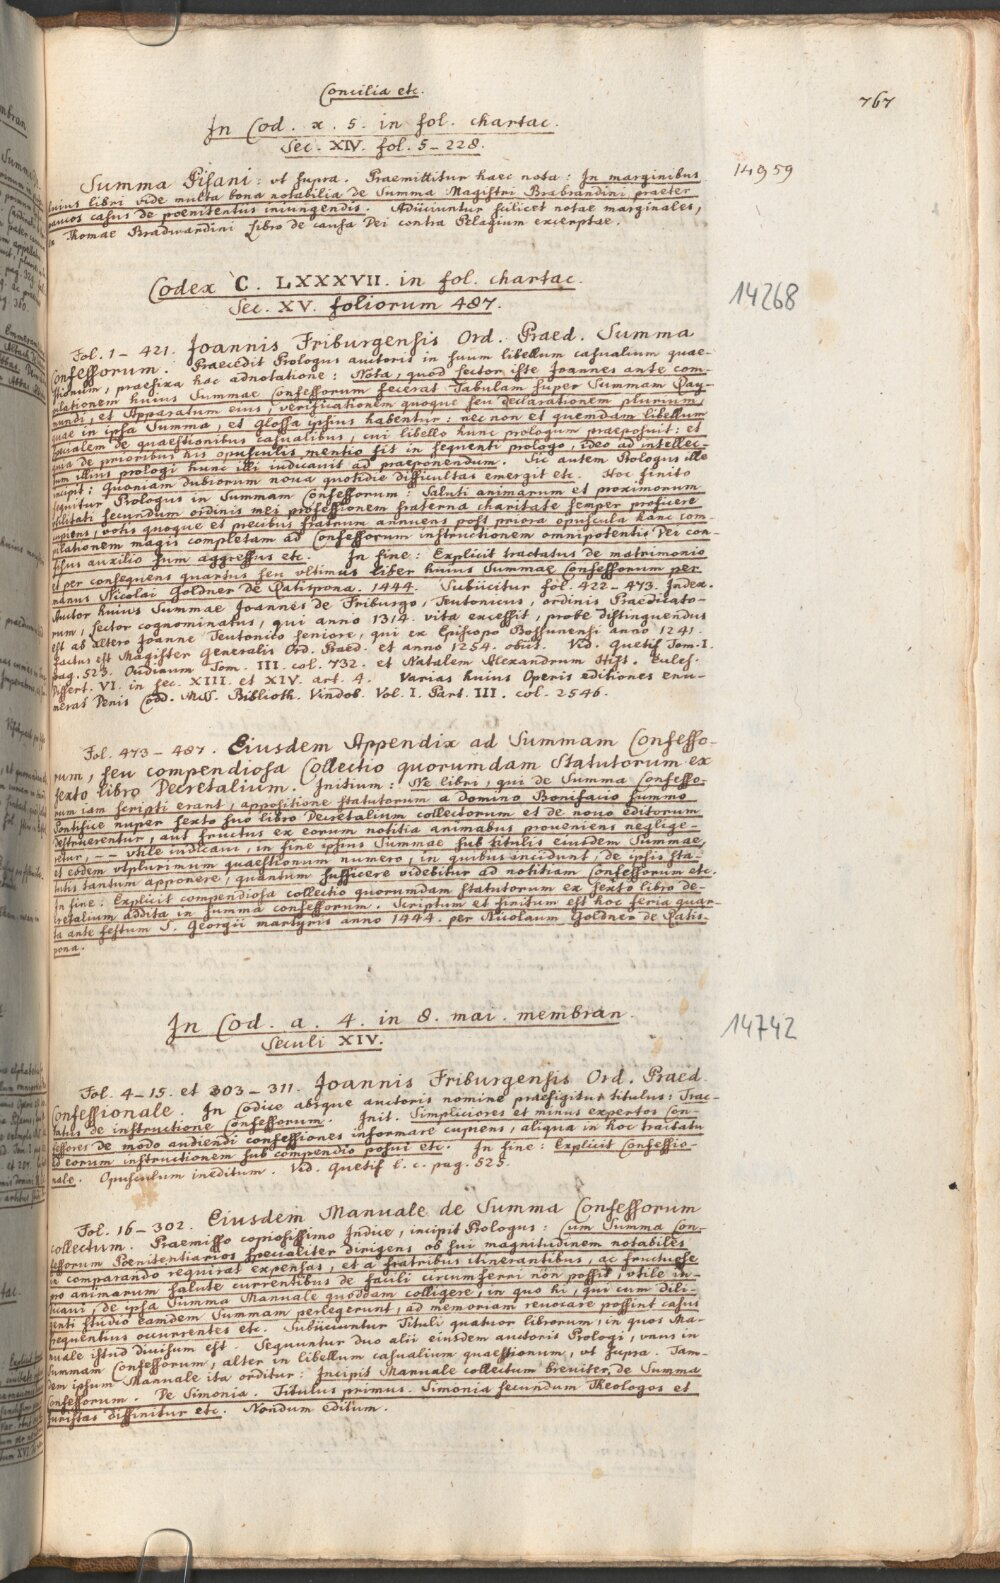 Concilia etc.
767
In Cod. x. 5. in fol. chartac.
Sec. XIV. fol. 5–228.
14959
Summa Pisani: ut supra. Praemittitur haec nota: In marginibus
huius libri vide multa bona notabilia de Summa Magistri Brabrandini praeter
paucos casus de poenitentiis iniungendis. Adiiciuntur scilicet notae marginales,
Thomae Bradwardini libro de causa Dei contra Pelagium excerptae.
Codex C. LXXXVII. in fol. chartac.
Sec. XV. foliorum 487.
14268
Fol. 1–421. Joannis Friburgensis Ord. Praed. Summa
Confessorum. Praecedit Prologus auctoris in suum libellum casualium quae-
stionum, praefixa hac adnotatione: Nota, quod lector iste Joannes ante com-
pilationem huius Summae Confessorum fecerat Tabulam super Summam Ray-
mundi, et Apparatum eius, verificationem quoque seu declarationem plurium,
quae in ipsa Summa, et Glossa ipsius habentur: nec non et quemdam libellum
specialem de quaestionibus casualibus, cui libello hunc prologum praeposuit: et
quia de prioribus his opusculis mentio fit in sequenti prologo, ideo ad intellec-
tum illius prologi hunc illi iudicavit ad praeponendum. Sic autem Prologus ille
incipit: Quoniam dubiorum nova quotidie difficultas emergit etc. Hoc finito
sequitur Prologus in Summam Confessorum: Saluti animarum et proximorum
utilitati secundum ordinis mei professionem fraterna charitate semper proficere
cupiens, votis quoque et precibus fratrum annuens post priora opuscula hanc com-
pilationem magis completam ad Confessorum instructionem omnipotentis Dei con-
fisus auxilio sum aggressus etc. In fine: Explicit tractatus de matrimonio
et per consequens quartus seu ultimus liber huius Summae Confessorum per
manus Nicolai Goldner de Ratispona. 1444. Subiicitur fol. 422–473. Index.
Auctor huius Summae Joannes de Friburgo, Teutonicus, ordinis Praedicato-
rum, lector cognominatus, qui anno 1314. vita excessit, probe distinguendus
est ab altero Joanne Teutonico seniore, qui ex Episcopo Bossunensi anno 1241.
factus est Magister Generalis Ord. Praed. et anno 1254. obiit. Vid. Quetif Tom. I.
pag. 523. Oudinum Tom. III. col. 732. et Natalem Alexandrum Hist. Eccles.
Dissert. VI. in sec. XIII. et XIV. art. 4. Varias huius Operis editiones enu-
merat Denis Codd. Mss. Biblioth. Vindob. Vol. I. Part. III. col. 2546.
Fol. 473–487. Eiusdem Appendix ad Summam Confesso-
rum, seu compendiosa Collectio quorumdam Statutorum ex
sexto libro Decretalium. Initium: Ne libri, qui de Summa Confesso-
rum iam scripti erant, appositione statutorum a domino Bonifacio summo
Pontifice nuper sexto suo libro Decretalium collectorum et de novo editorum
destruerentur, aut fructus ex eorum notitia animabus proveniens neglige-
retur, -- utile iudicavi, in fine ipsius Summae sub titulis eiusdem Summae,
et eodem utplurimum quaestionum numero, in quibus incidunt, de ipsis sta-
tutis tantum apponere, quantum sufficere videbitur ad notitiam Confessorum etc.
In fine: Explicit compendiosa collectio quorumdam statutorum ex sexto libro de-
cretalium addita in summa confessorum. Scriptum et finitum est hoc feria quar-
ta ante festum S. Georgii martyris anno 1444. per Nicolaum Goldner de Ratis-
pona.
In Cod. a. 4. in 8. mai. membran.
Seculi XIV.
14742
Fol. 4–15. et 303–311. Joannis Friburgensis Ord. Praed.
Confessionale. In Codice absque auctoris nomine praefigitur titulus: Trac-
tatus de instructione Confessorum. Init. Simpliciores et minus expertos Con-
fessores de modo audiendi confessiones informare cupiens, aliqua in hoc tractatu
ad eorum instructionem sub compendio posui etc. In fine: Explicit Confessio-
nale. Opusculum ineditum. Vid. Quetif l. c. pag. 525.
Fol. 16–302. Eiusdem Manuale de Summa Confessorum
collectum. Praemisso copiosissimo Indice, incipit Prologus: Cum Summa Con-
fessorum Poenitentiarios specialiter dirigens ob sui magnitudinem notabiles
in comparando requirat expensas, et a fratribus itinerantibus, ac fructuose
pro animarum salute currentibus de facili circumferri non possit, utile iu-
dicavi, de ipsa Summa Manuale quoddam colligere, in quo hi, qui cum dili-
genti studio eamdem Summam perlegerunt, ad memoriam revocare possint casus
frequentius occurrentes etc. Subiiciuntur Tituli quatuor librorum, in quos Ma-
nuale istud divisum est. Sequuntur duo alii eiusdem auctoris Prologi, unus in
Summam Confessorum, alter in libellum casualium quaestionum, ut supra. Tan-
dem ipsum Manuale ita orditur: Incipit Manuale collectum breviter de Summa
Confessorum. De Simonia. Titulus primus. Simonia secundum Theologos et
Juristas diffinitur etc. Nondum editum.